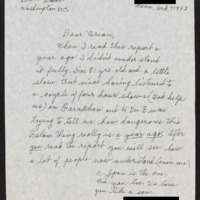 Washington D.C.
Dear Brian,
When I read this report a
year ago I didn't understand
it fully. I'm 81 yrs old and a little
slow. But since having listened to
a couple of four hour shows (God help
us) on Garathan and W Den B. was
trying to tell us how dangerous this
Islam thing really is a year ago. After
you read the report you will see how
a lot of people now understand (even me)
C-Span is the one
And you too. We love
you like a son.